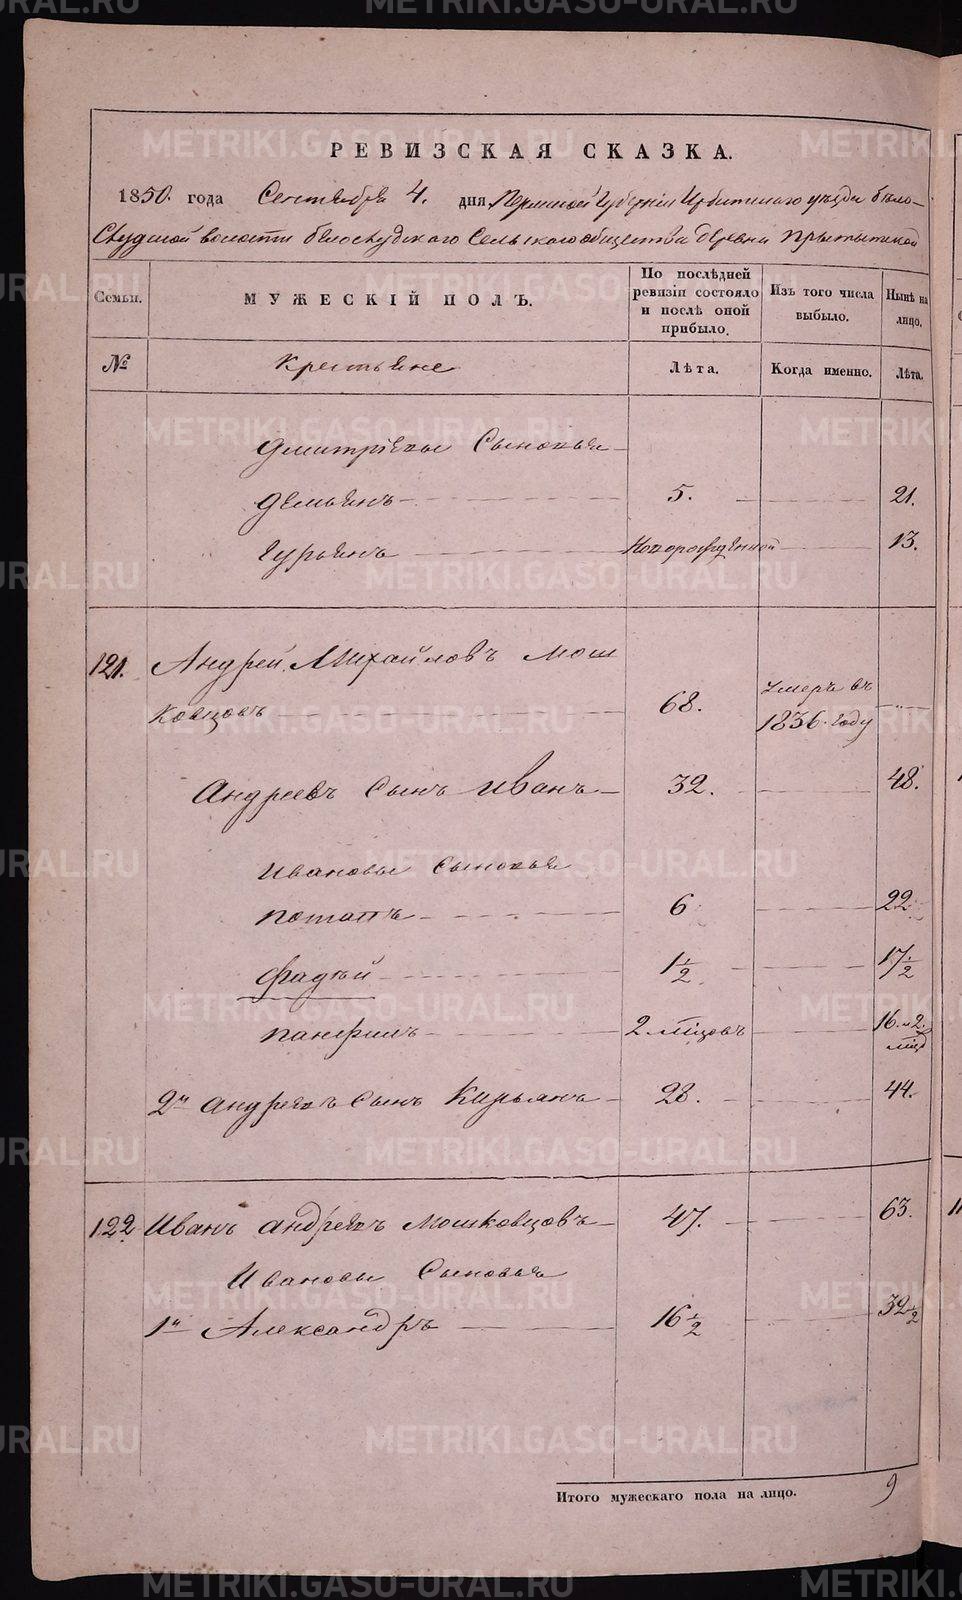 METRIKI.GASO-URAL.RU
РЕВИЗСКАЯ СКАЗКА.
1850. года Сентября 4. дня, Пермской Губерніи Ирбитскаго уѣзда бѣло-
Слудской волости бѣлослудскаго Сельскаго общества деревни
Семьи.
МУЖЕСКІЙ ПОЛЪ.
По послѣдней ревизіи состояло и послѣ оной прибыло.
Изъ того числа выбыло.
Нынѣ на лицо.
№
Крестьяне
Лѣта.
Когда именно.
Лѣта.
Дмитріевы Сыновья
Демьянъ 5. 21.
Гурьянъ Новорожденной 13.
121. Андрей Михайловъ Мош
ковцовъ 68. умеръ въ 1836. году
Андреевъ Сынъ Иванъ 32. 48.
Ивановы Сыновья
Потапъ 6 22
Фадѣй 1 1/2 17 1/2
Панфилъ 2 мѣсцовъ 16. и 2. мѣсц
2й Андреевъ Сынъ Кирьянъ 28. 44.
122 Иванъ Андреевъ Мошковцовъ 47. 63.
Ивановы Сыновья
1й Александръ 16 1/2 32 1/2
Итого мужескаго пола на лицо. 9